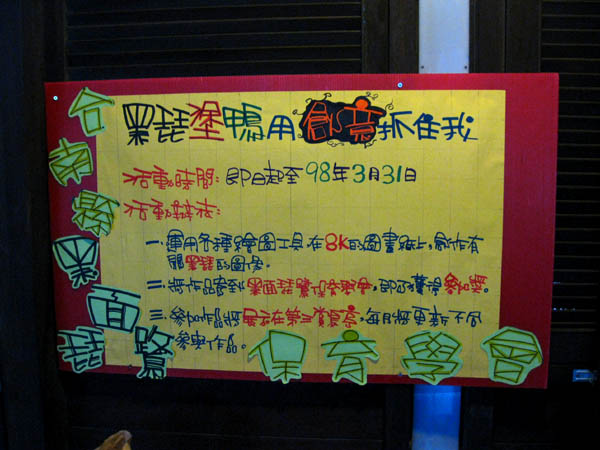 黑琵塗鴨用創意抓住我
活動時間:即日起至98年3月31日
活動辦法:
一.運用各種繪圖工具,在8K的圖畫紙上,創作有
關黑琵的圖像。
二.將作品寄到黑面琵鷺保育學會,即可獲得參加獎。
三.參加作品將展示在第三賞鳥亭,每月將更新不同
參與作品。
台南縣黑面琵鷺保育學會